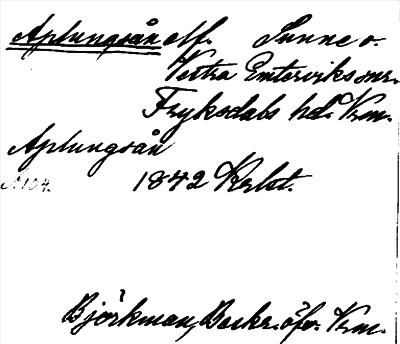 Aplungsån elf. Sunne o.
Västra Emterviks snr.
Fryksdals hd. Vrm.
Aplungsån
1842 Krlst.
Björkman, Beskr. öfv. Vrm.